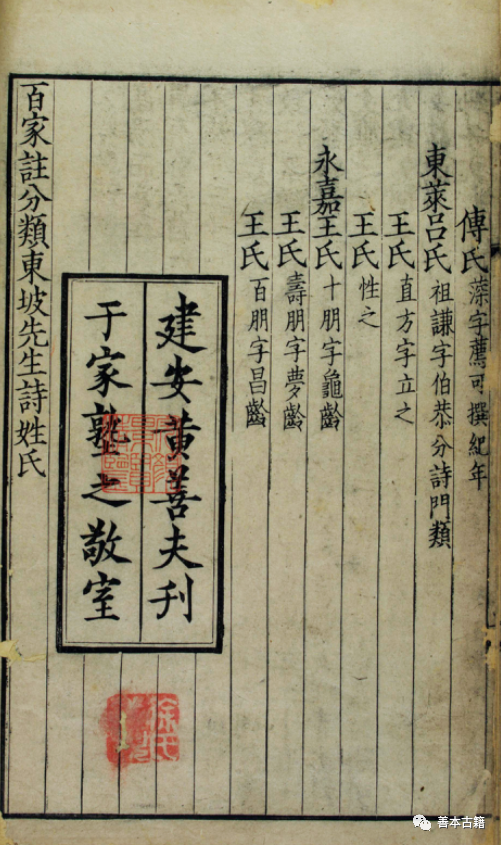 傅氏 藻字薦可撰紀年
東萊呂氏 祖謙字伯恭分詩門類
王氏 直方字立之
王氏 性之
永嘉王氏 十朋字龜齡
王氏 壽朋字夢齡
王氏 百朋字昌齡
建安黃善夫刊
于家塾之敬室
百家註分類東坡先生詩姓氏
善本古籍